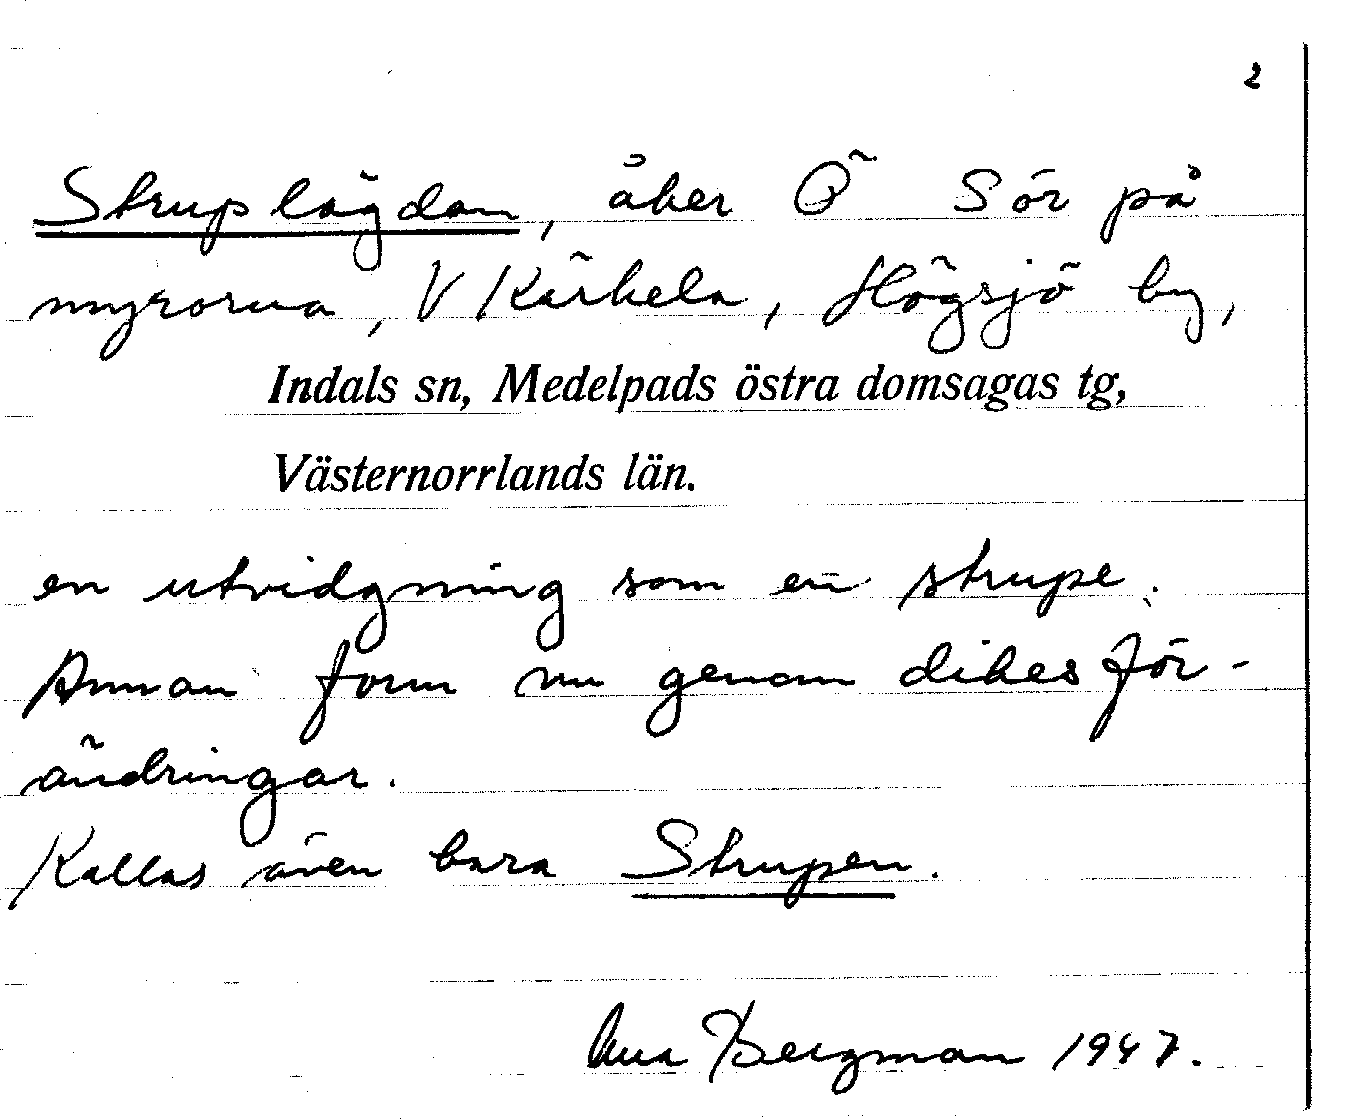 2
Struplägdan, åker Ö Sör på
myrorna, V Kärkela, Högsjö by,
Indals sn, Medelpads östra domsagas tg,
Västernorrlands län.
en utvidgning som en strupe.
Annan form nu genom dikesför-
ändringar.
Kallas även bara Strupen.
Bergman 1947.